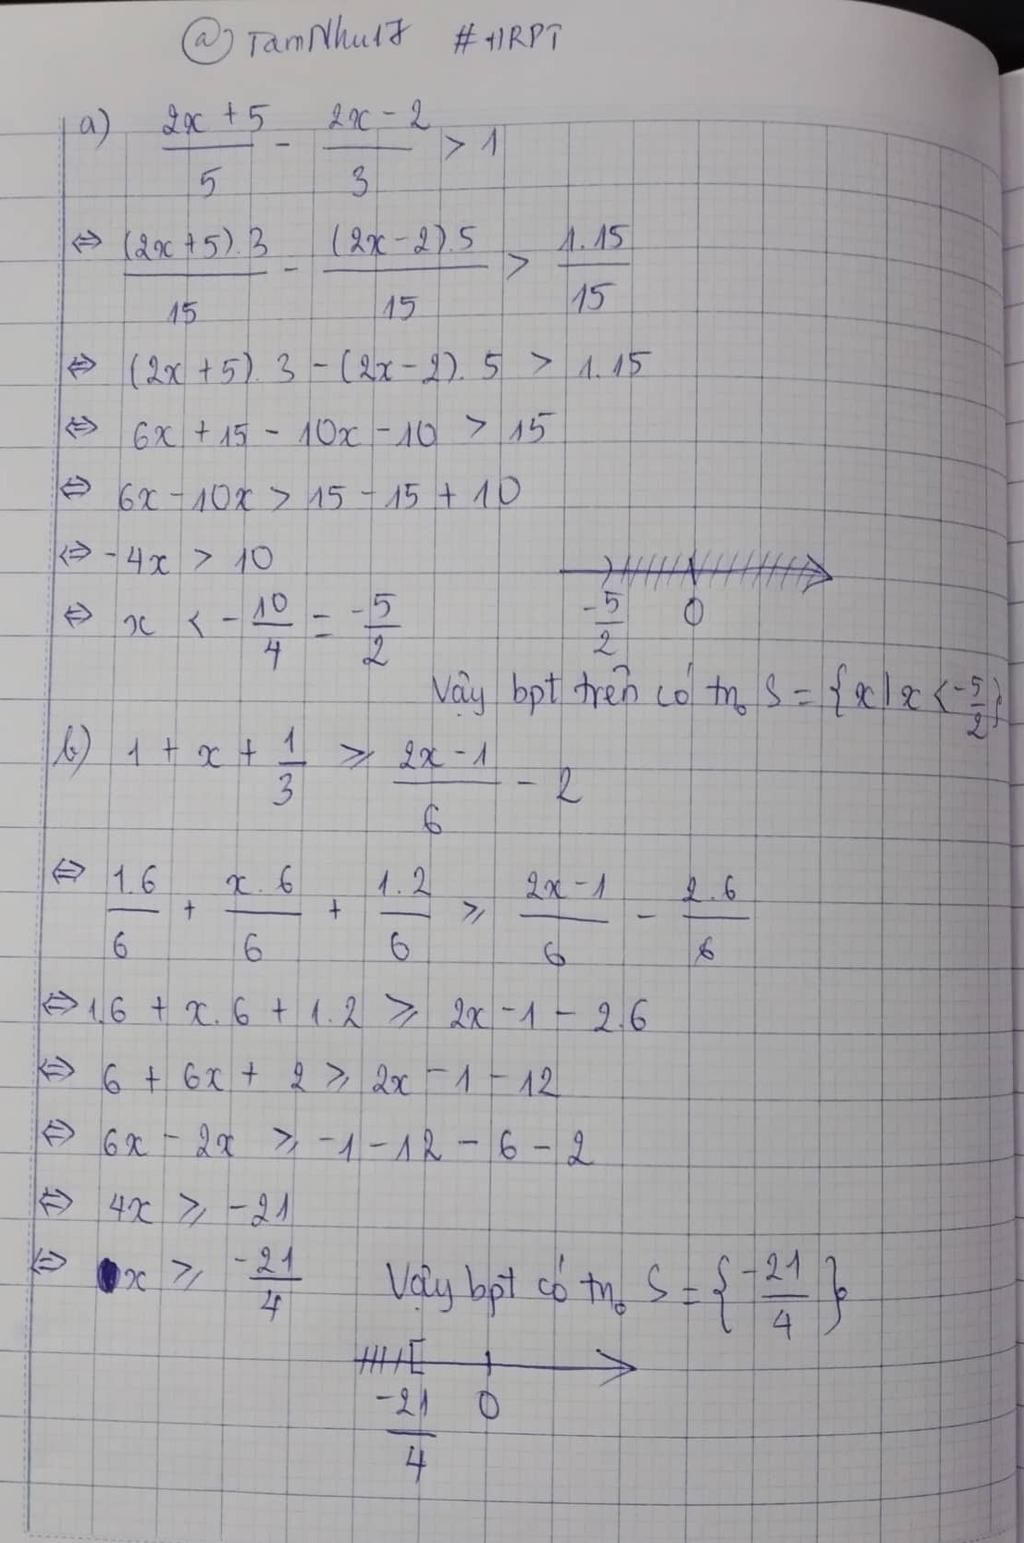 @TamNhu17 #HRPT
a) (2x + 5)/5 - (2x - 2)/3 > 1
⇔ ((2x + 5).3)/15 - ((2x - 2).5)/15 > (1.15)/15
⇔ (2x + 5).3 - (2x - 2).5 > 1.15
⇔ 6x + 15 - 10x - 10 > 15
⇔ 6x - 10x > 15 - 15 + 10
⇔ -4x > 10
⇔ x < -10/4 = -5/2
-5/2 0
Vậy bpt trên có tn₀ S = {x | x < -5/2}
b) 1 + x + 1/3 ⩾ (2x - 1)/6 - 2
⇔ (1.6)/6 + (x.6)/6 + (1.2)/6 ⩾ (2x - 1)/6 - (2.6)/6
⇔ 1.6 + x.6 + 1.2 ⩾ 2x - 1 - 2.6
⇔ 6 + 6x + 2 ⩾ 2x - 1 - 12
⇔ 6x - 2x ⩾ -1 - 12 - 6 - 2
⇔ 4x ⩾ -21
⇔ x ⩾ -21/4 Vậy bpt có tn₀ S = {-21/4}
-21/4 0